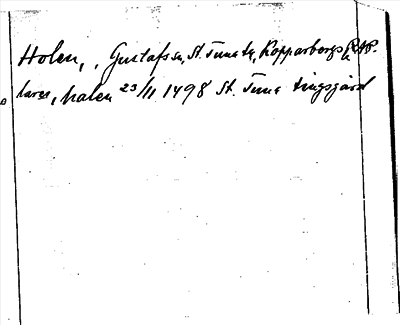 Holen, , Gustafs sn, St. Tuna tg, Kopparbergs
Lares, Malen 23/11 1498 St. Tuna tingsgård